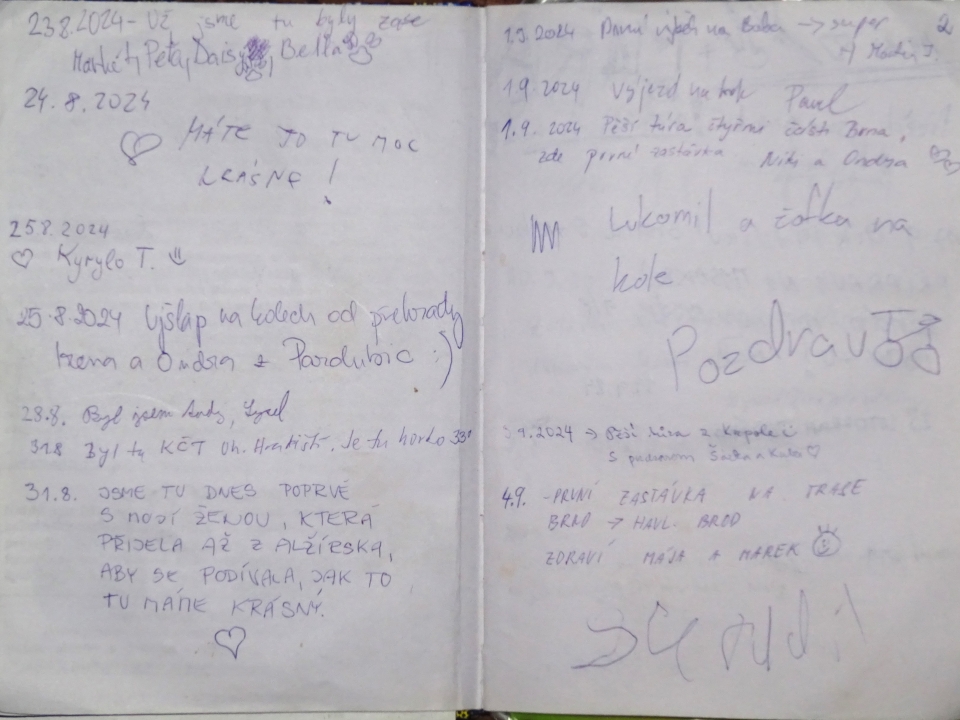 23.8.2024 - Už jsme tu byly zase
Markét, Péťa, Daisy, Bella
24.8.2024
MÁTE TO TU MOC
KRÁSNÉ!
25.8.2024
♡ Kyrylo T.
25.8.2024 Výšlap na kolech od přehrady
a Ondra z Pardubic :)
28.8. Byl jsem
31.8 Byl tu KČT Uh. Hradiště. Je tu horko 33°
31.8. JSME TU DNES POPRVÉ
S MOJÍ ŽENOU, KTERÁ
PŘIJELA AŽ Z ALŽÍRSKA,
ABY SE PODÍVALA, JAK TO
TU MÁME KRÁSNÝ.
♡
2
1.9.2024 První výjezd na → super
1.9.2024 Výjezd na kole Pavel
1.9.2024 Pěší túra čtyřmi částmi Brna,
zde první zastávka Niki a Ondra
Lukomil a žofka na
kole
Pozdrav
.9.2024 → Pěší túra z
S
4.9. - PRVNÍ ZASTÁVKA NA TRASE
BRNO → HAVL. BROD
ZDRAVÍ MÁJA A MAREK